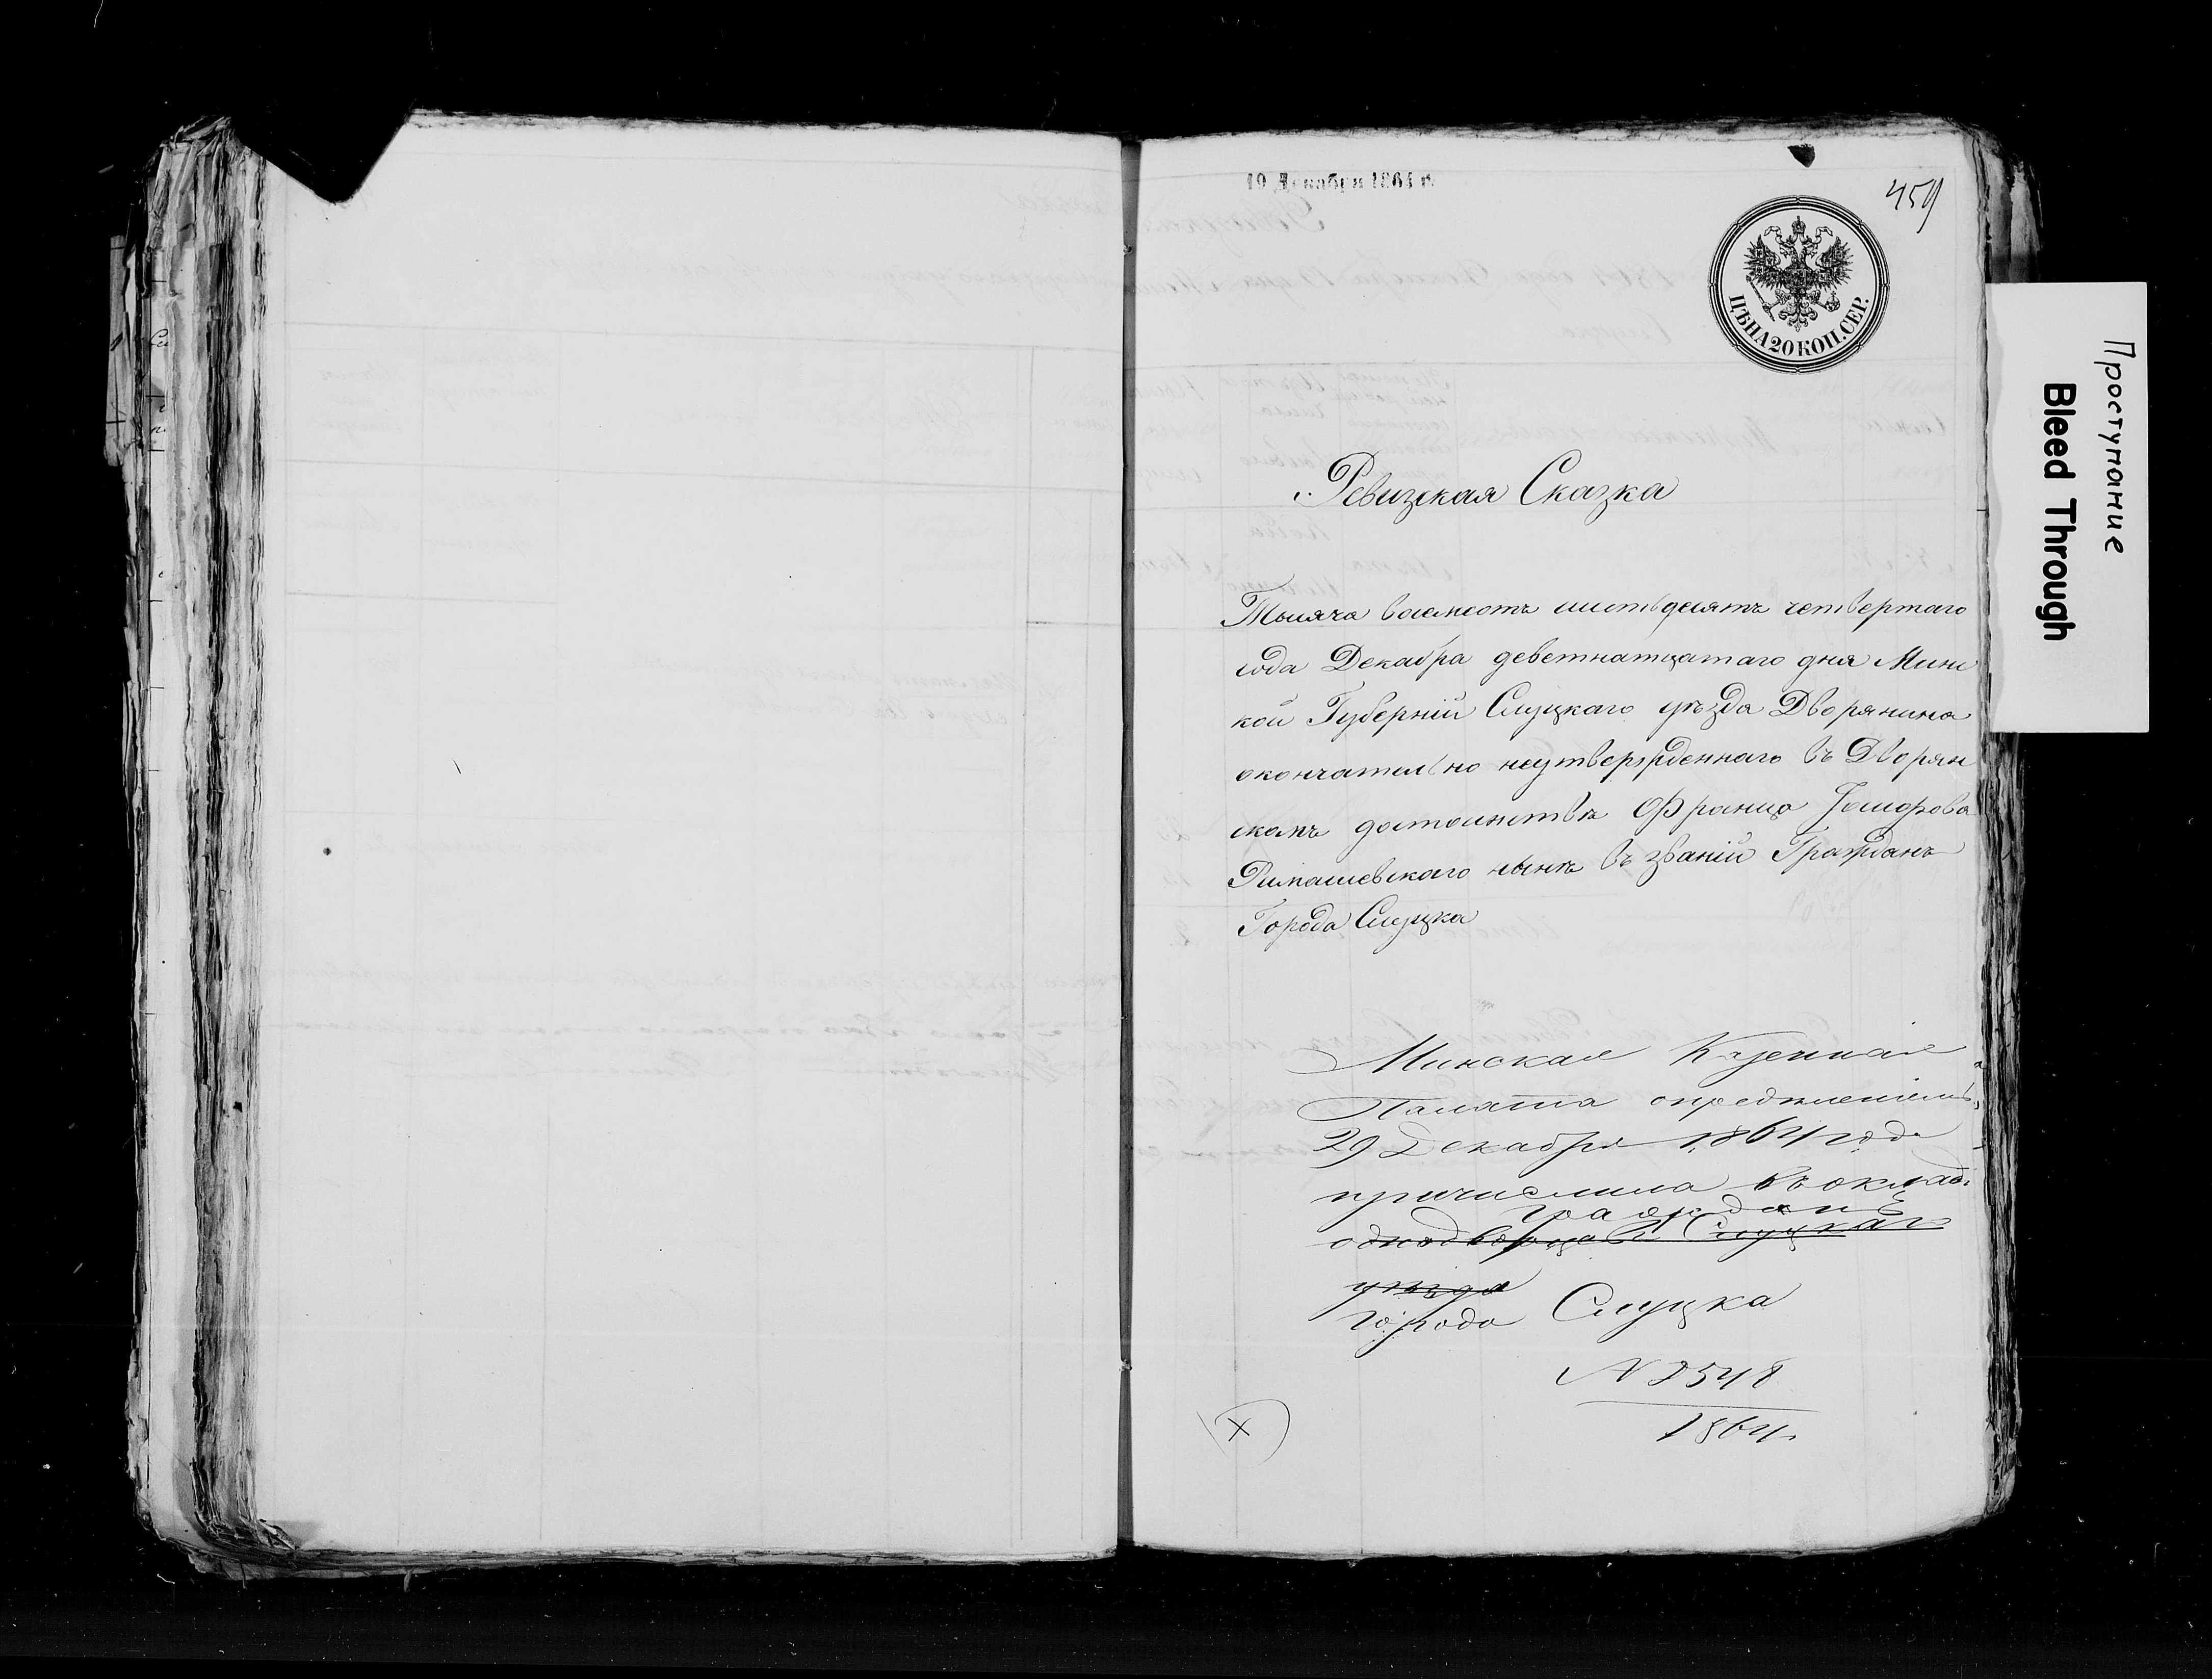 19 Декабря 1864 г.
459
ЦѢНА 20 КОП. СЕР.
Проступание
Bleed Through
Ревизская Сказка
Тысяча восемсотъ шестьдесятъ четвертаго
года Декабра деветнатцатаго дня Минс
кой Губерніи Слуцкаго уѣзда Дворянина
окончательно неутвержденнаго въ Дворян
скомъ достоинствѣ Франца
Римашевскаго нынѣ въ званіи Гражданъ
Города Слуцка
Минская Казенная
Палата опредѣленіемъ
29 Декабря 1864 года
причислила въ окладъ
гражданъ
однодворцевъ Слуцкаго
уѣзда
города Слуцка
N 2548
1864.
X